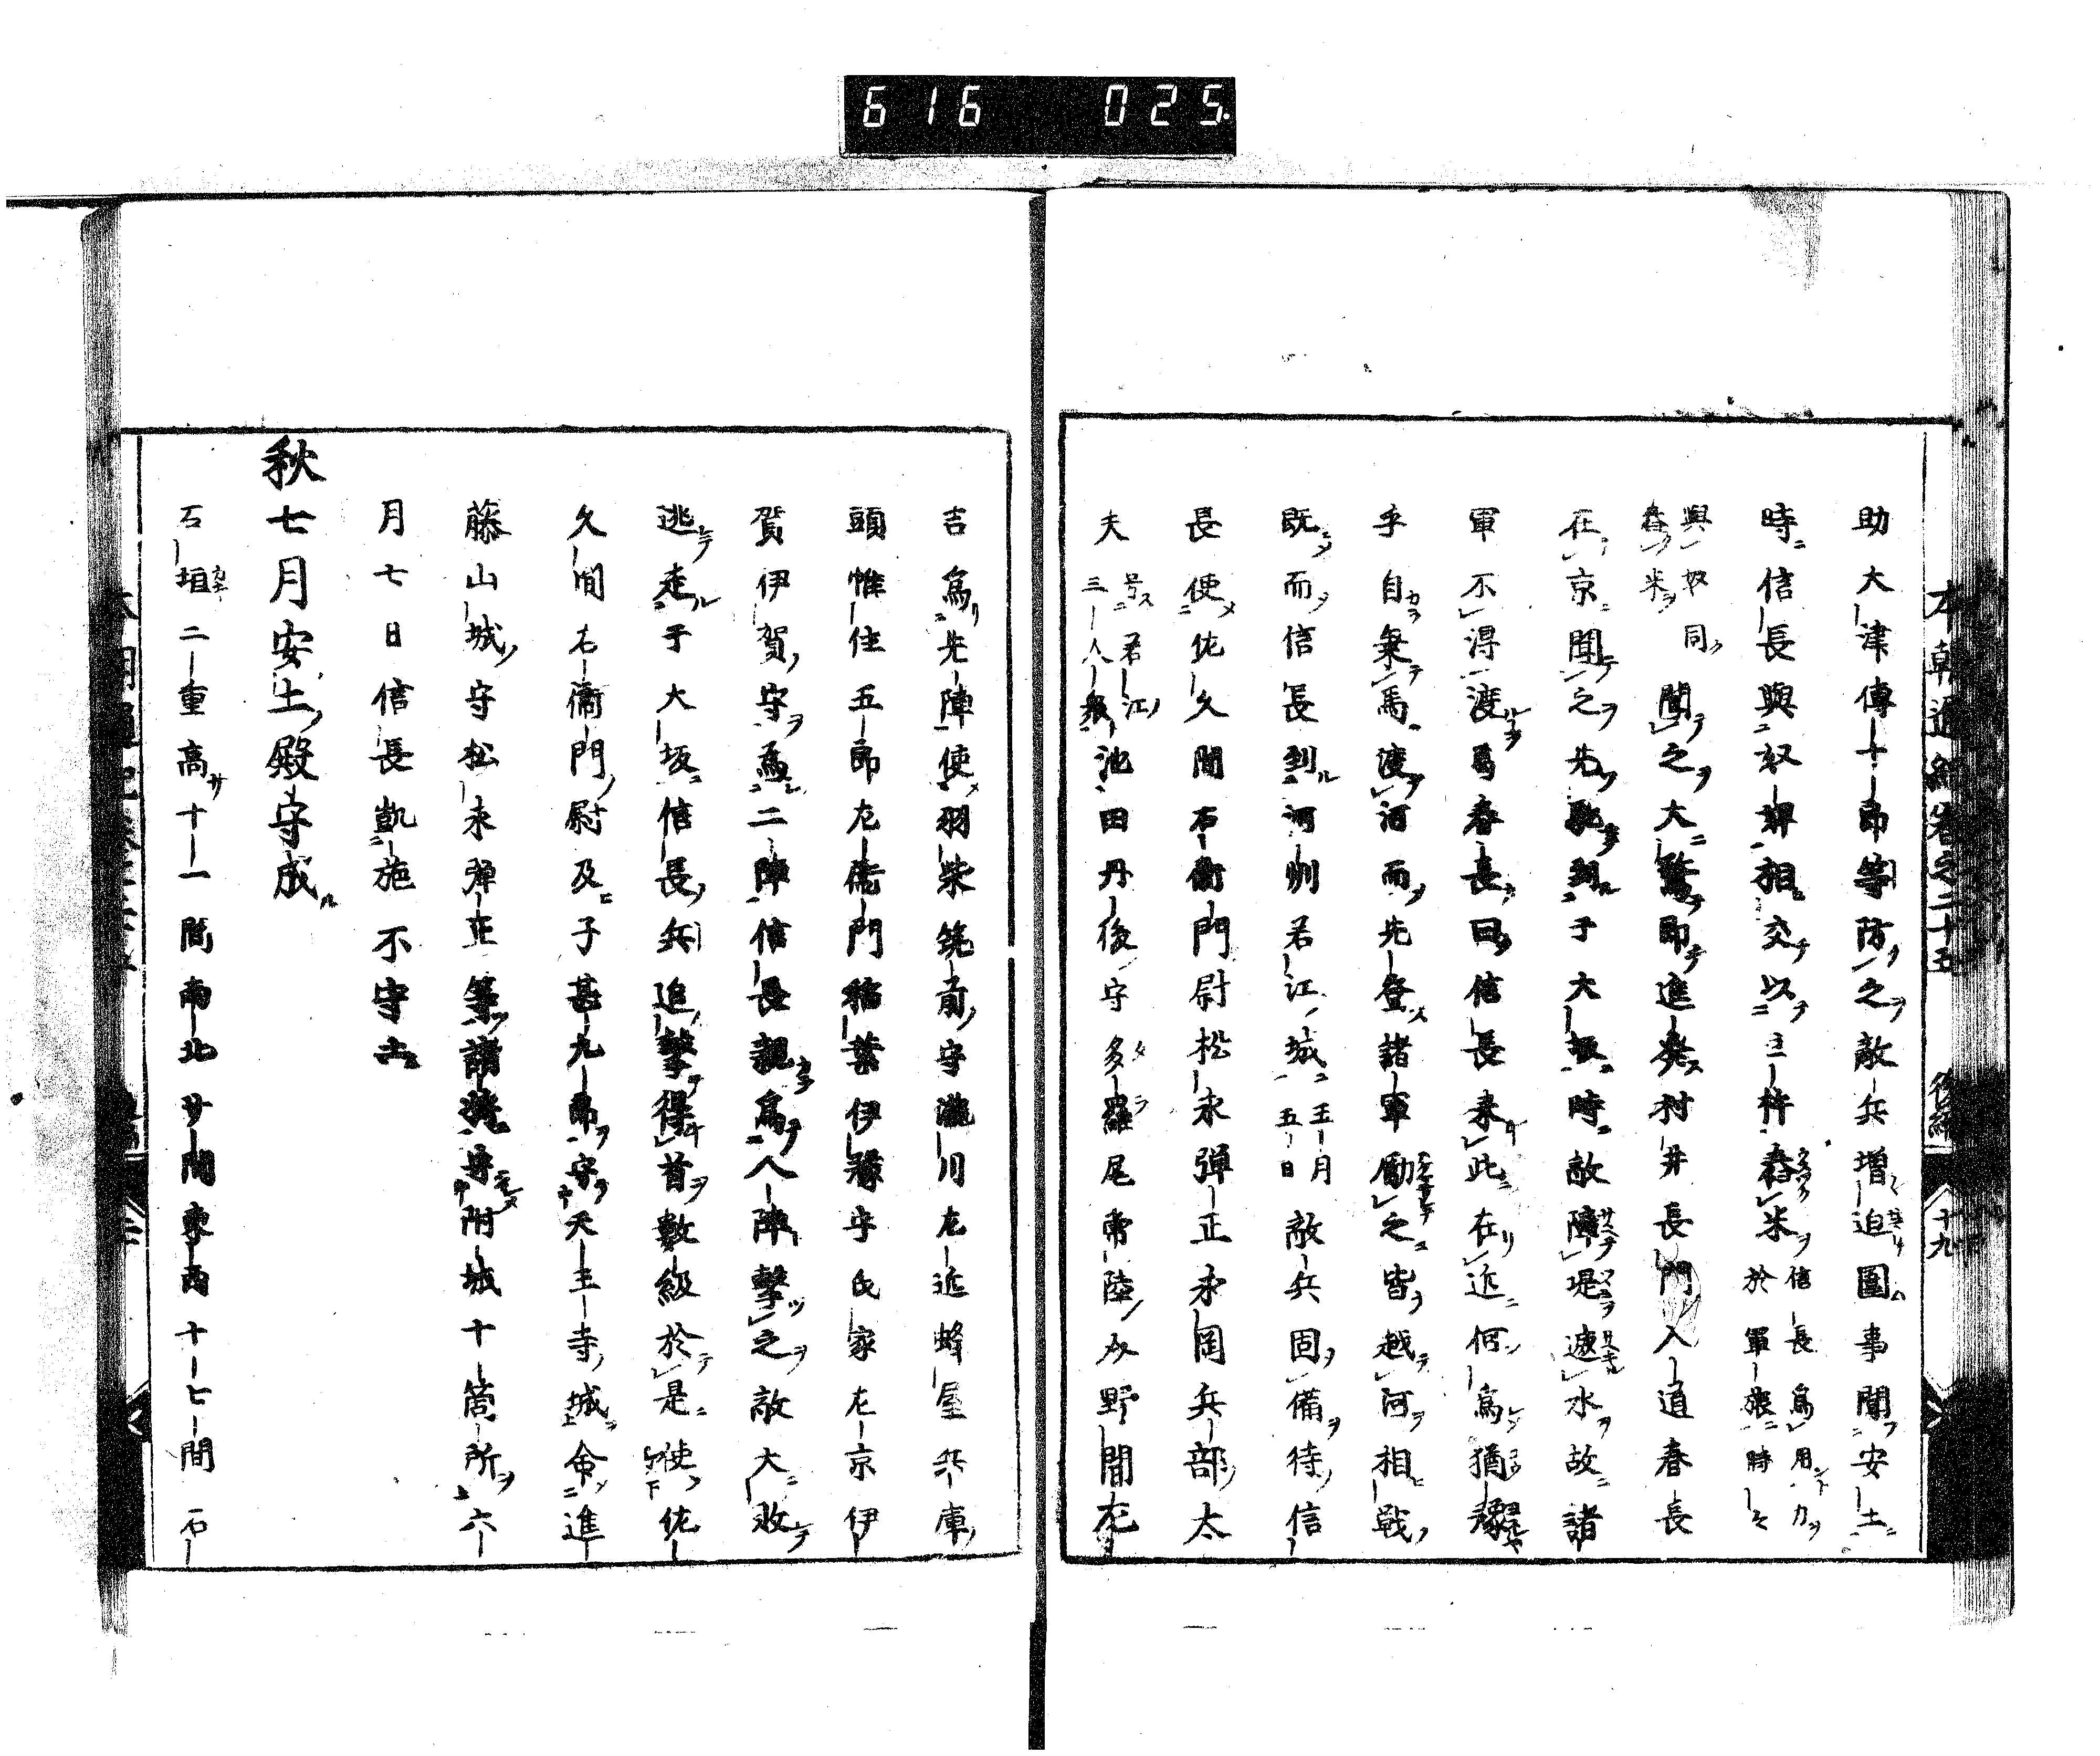 616 025
本朝通紀卷之二十五 後編 十九
助大津傳十郎等防之敵兵增迫圍事聞安土
時信長與奴婢相交以立杵舂米信長爲用力於軍旅時々
與奴同舂米聞之大驚即進發村井長門入道春長
在京聞之先馳到于大坂時敵障堤遮水故諸
軍不得渡焉春長曰信長來此在近何爲猶豫
乎自乗馬渡河而先登諸軍勵之皆越河相戰
既而信長到河州若江城五月五日敵兵固備待信
長使佐久間右衛門尉松永彈正永岡兵部太
夫号若江三人衆池田丹後守多羅尾常陸介野間左
吉爲先陣使羽柴筑前守瀧川左近蜂屋兵庫
頭惟住五郎左衛門稲葉伊豫守氏家左京伊
賀伊賀守爲二陣信長親爲八陣擊之敵大敗
逃走于大坂信長兵追擊得首數級於是使佐
久間右衛門尉及子甚九郎守天王寺城命進
藤山城守松永彈正等諸將守附城十箇所六
月七日信長凱旋不守土
秋七月安土殿守成
石垣二重高十一間南北廿間東西十七間石